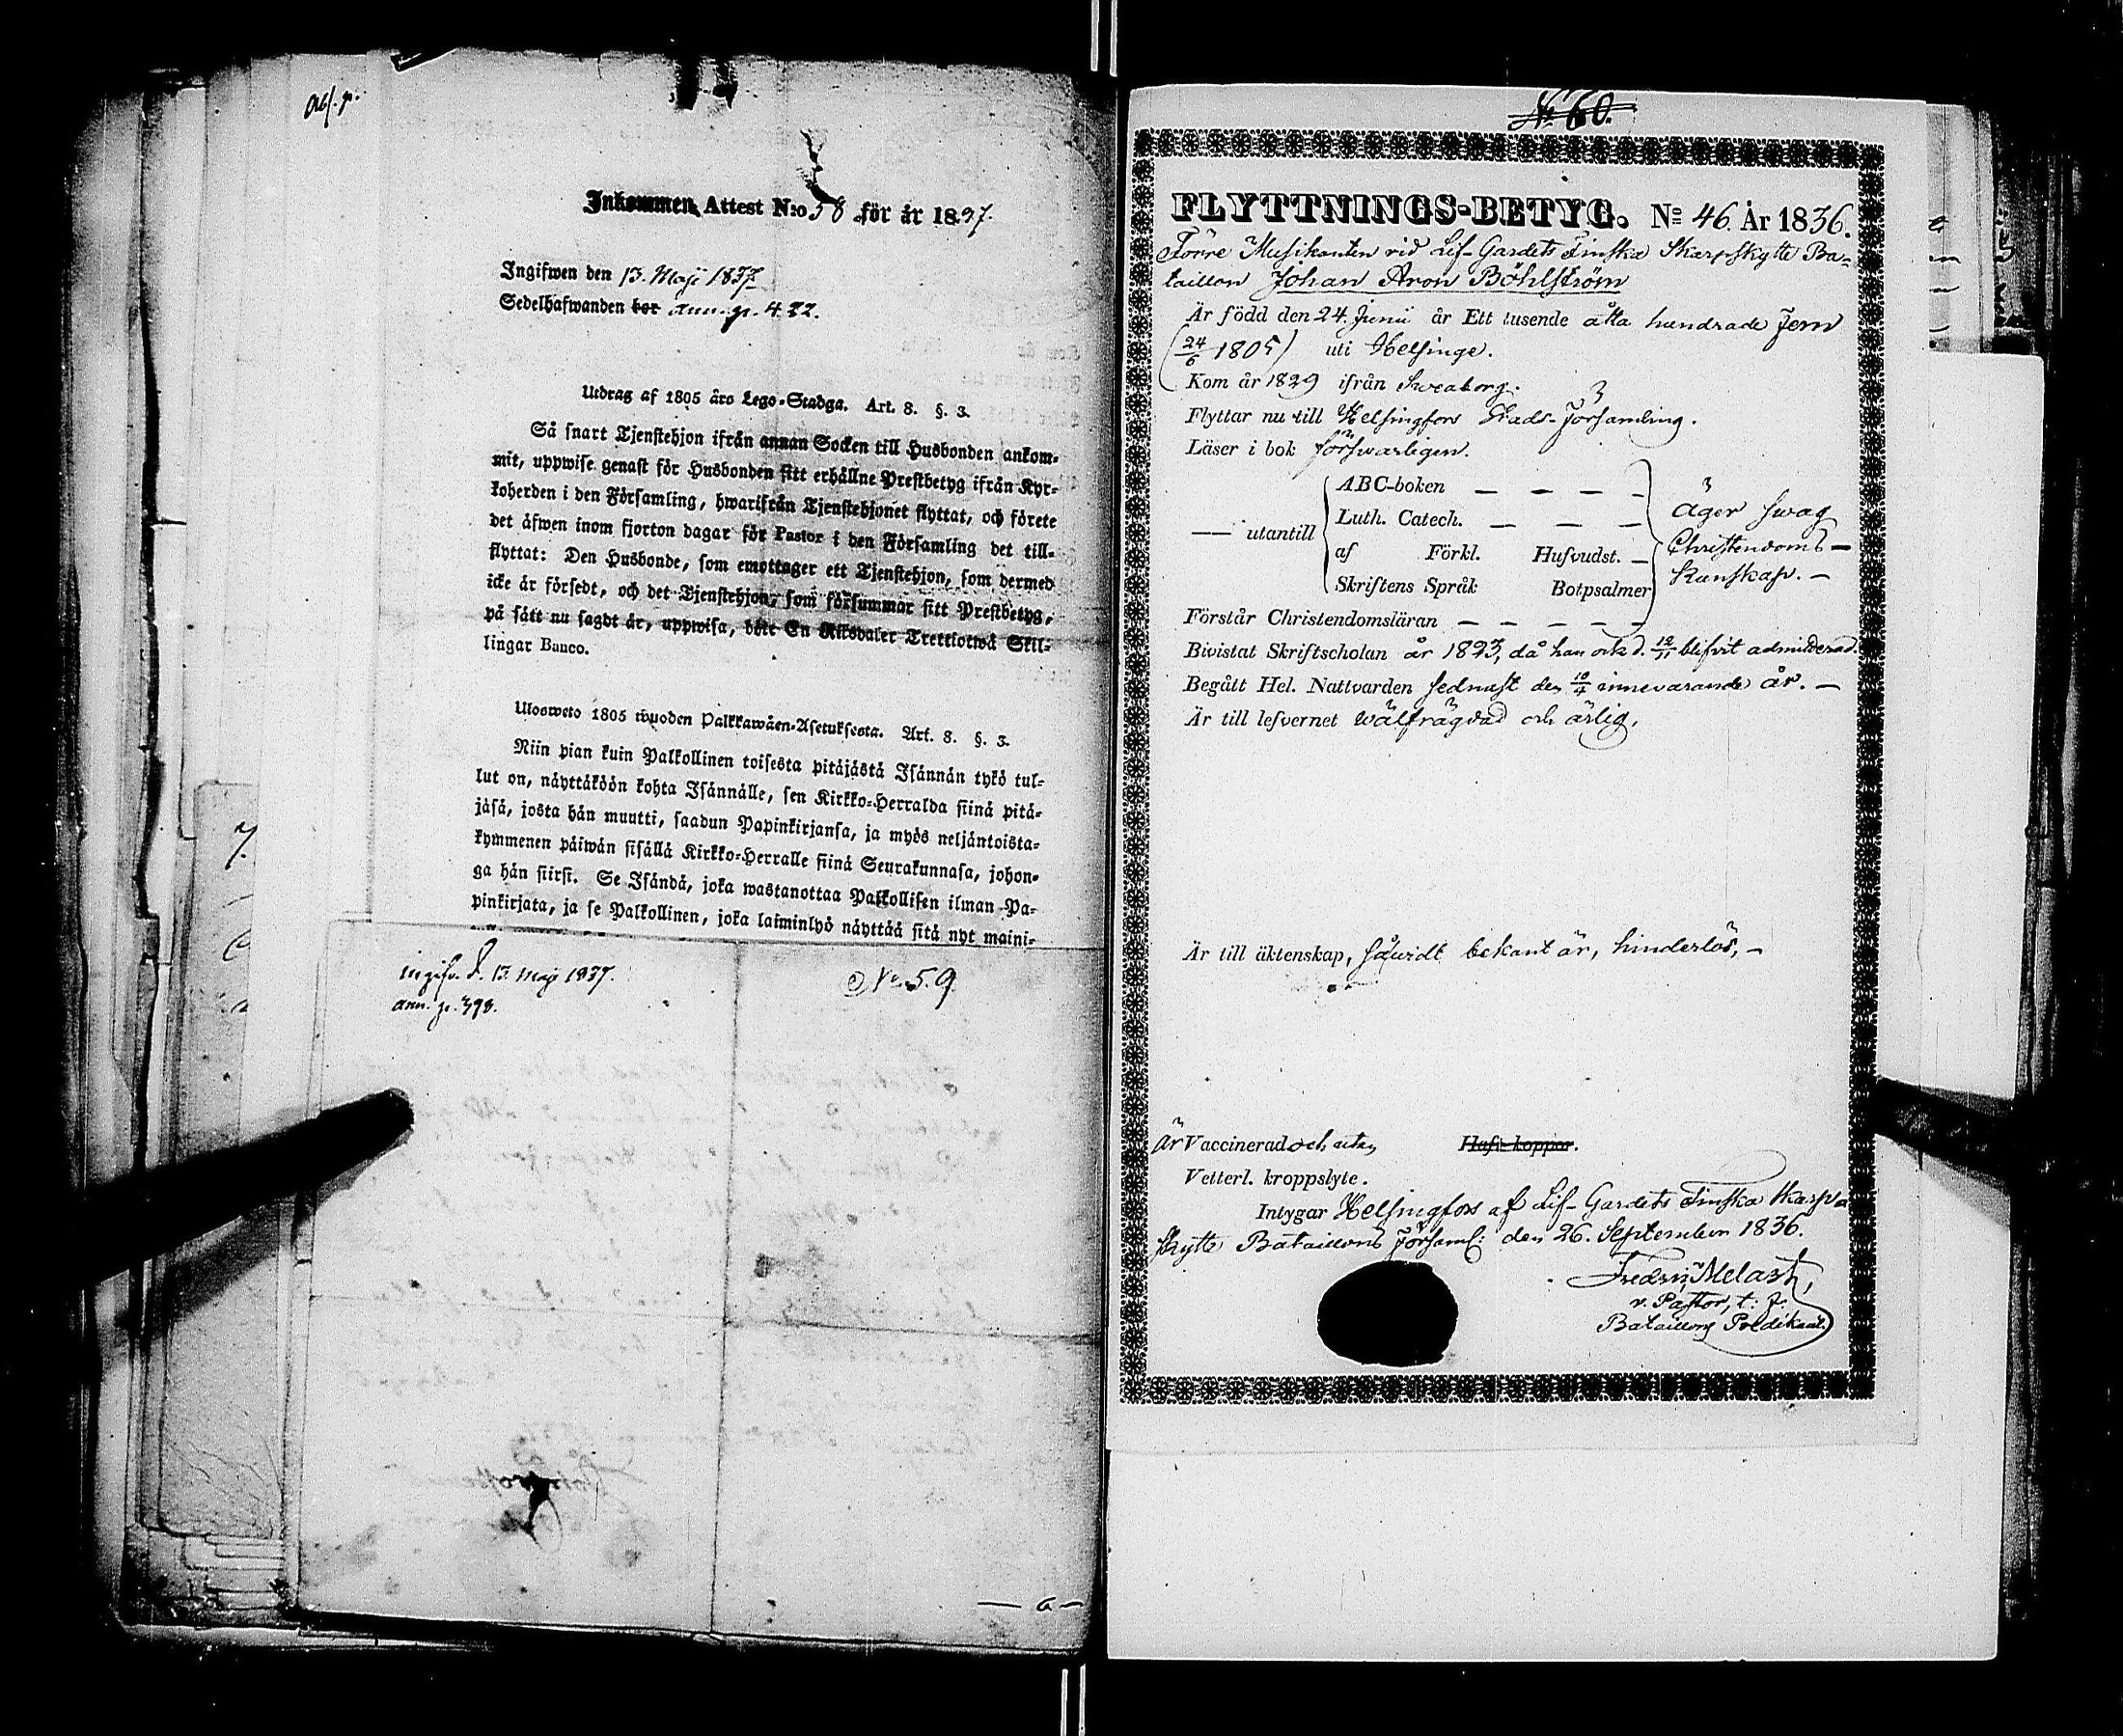 Abs. p.
Inkommen Attest N:o 58 för år 1837.
Ingifwen den 13. Maji 1837
Sedelhafwanden bor ann. p. 422.
Utdrag af 1805 års Lego-Stadga. Art. 8. §. 3.
Så snart Tjenstehjon ifrån annan Socken till Husbonden ankom-
mit, uppwise genast för Husbonden sitt erhållne Prestbetyg ifrån Kyr-
koherden i den Församling, hwarifrån Tjenstehjonet flyttat, och förete
det äfwen inom fjorton dagar för Pastor i den Församling det till-
flyttat: Den Husbonde, som emottager ett Tjenstehjon, som dermed
icke är försedt, och det Tjenstehjon, som försummar sitt Prestbetyg,
på sätt nu sagdt är, uppwisa, böte En Riksdaler Trettiotwå Skil-
lingar Banco.
Ulosweto 1805 wuoden Palkkawäen-Asetuksesta. Art. 8. §. 3.
Niin pian kuin Palkollinen toisesta pitäjästä Isännän tykö tul-
lut on, näyttäköön kohta Isännälle, sen Kirkko-Herralda siinä pitä-
jäsä, josta hän muutti, saadun Papinkirjansa, ja myös neljäntoista-
kymmenen päiwän sisällä Kirkko-Herralle siinä Seurakunnasa, johon-
ga hän siirsi. Se Isändä, joka wastanottaa Palkollisen ilman Pa-
pinkirjata, ja se Palkollinen, joka laiminlyö näyttää sitä nyt maini-
ingifv. d. 13 Maji 1837.
ann. p. 398.
No. 59.
No 60.
FLYTTNINGS-BETYG. No 46. År 1836.
Förre Musikanten vid Lif-Gardets Finska Skarpskytte Ba-
taillon Johan Aron Böhlström
Är född den 24. Junii år Ett tusende åtta hundrade fem
(24/6 1805) uti Helsinge.
Kom år 1829 ifrån Sweaborg.
Flyttar nu till Helsingfors Stads-Församling.
Läser i bok försvarligen.
— utantill
ABC-boken — — — —
Luth. Catech. — — —
af Förkl. Hufvudst. —
Skriftens Språk Botpsalmer
Äger swag
Christendoms —
Kunskap. —
Förstår Christendomsläran — — — — —
Bivistat Skriftscholan år 1823, då han ock d. 12/11 blifvit admitterad.
Begått Hel. Nattvarden sednast den 10/4 innevarande år. —
Är till lefvernet wälfrägdad och ärlig.
Är till äktenskap, såvidt bekant är, hinderlös, —
är Vaccinerad och utan Haft koppor.
Vetterl. kroppslyte.
Intygar Helsingfors af Lif-Gardets Finska Skarp-
skytte Bataillons Församl: den 26. September 1836.
Fredrij Melart,
v. Pastor, t. f.
Bataillons Predikant.